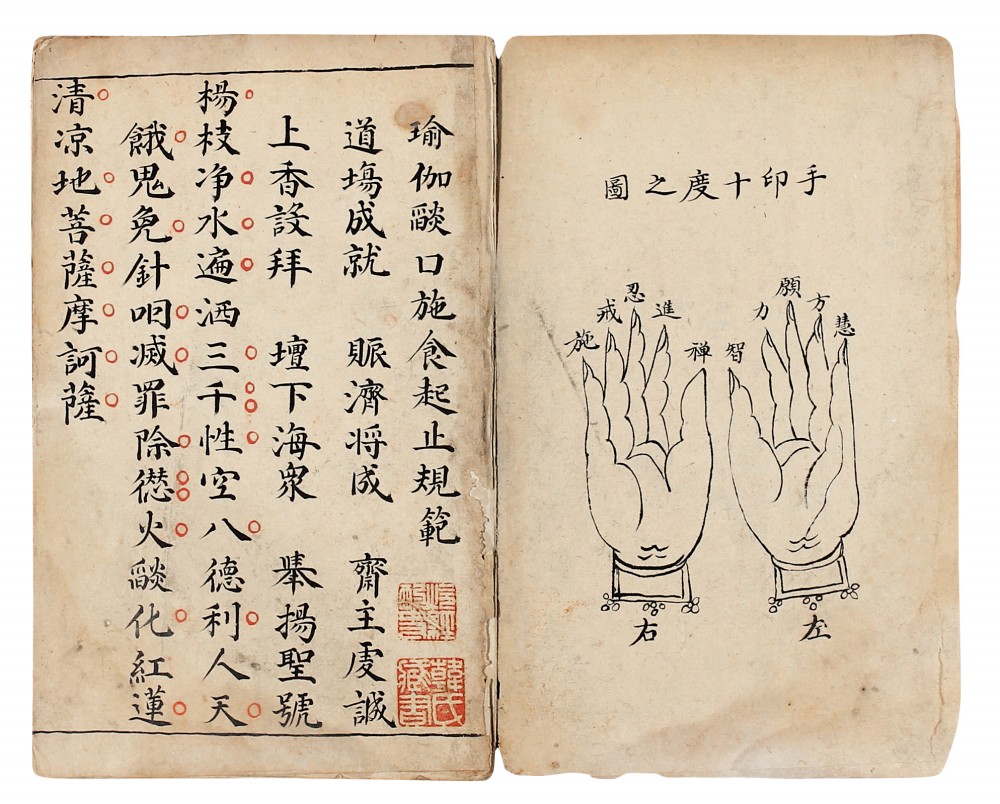 手印十度之圖
慧
方
願
力
智
禪
進
忍
戒
施
左
右
瑜伽燄口施食起止規範
道場成就 賑濟将成 齋主虔誠
上香設拜 壇下海衆 舉揚聖號
楊枝净水遍洒三千性空八德利人天
餓鬼免針咽滅罪除愆火燄化紅蓮
清凉地菩薩摩訶薩
韓氏藏書